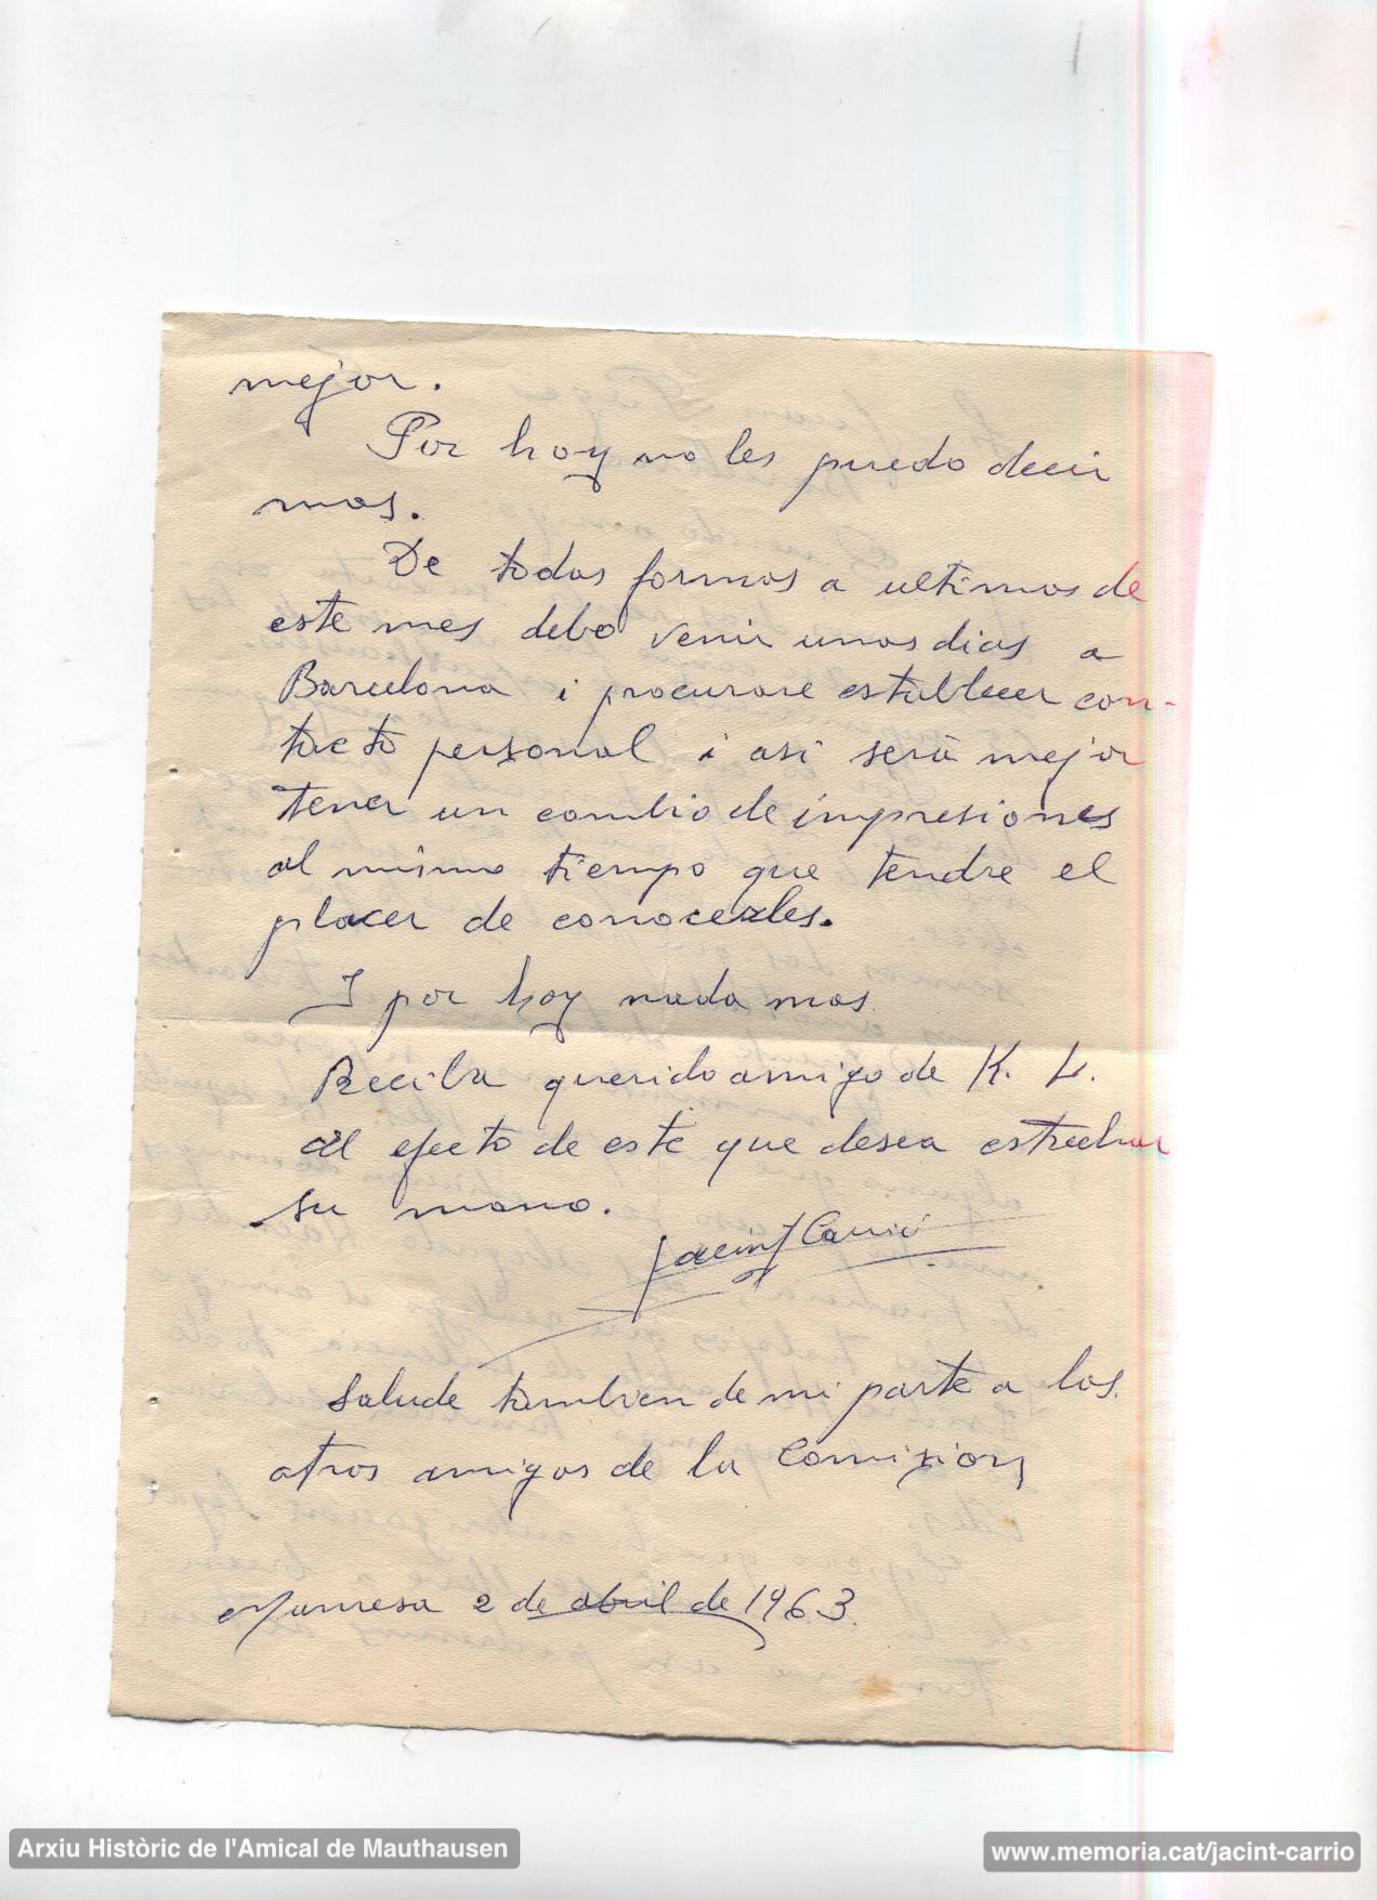 mejor.
Por hoy no les puedo decir
mas.
De todas formas a ultimos de
este mes debo venir unos dias a
Barcelona i procurare establecer con-
tacto personal i asi serà mejor
tener un cambio de impresiones
al mismo tiempo que tendre el
placer de conocerles.
I por hoy nada mas.
Reciba querido amigo de K. L.
el efecto de este que desea estrechar
su mano.
Jacint Carrió
Salude tambien de mi parte a los
otros amigos de la Comizion
Manresa 2 de abril de 1963.
Arxiu Històric de l'Amical de Mauthausen
www.memoria.cat/jacint-carrio